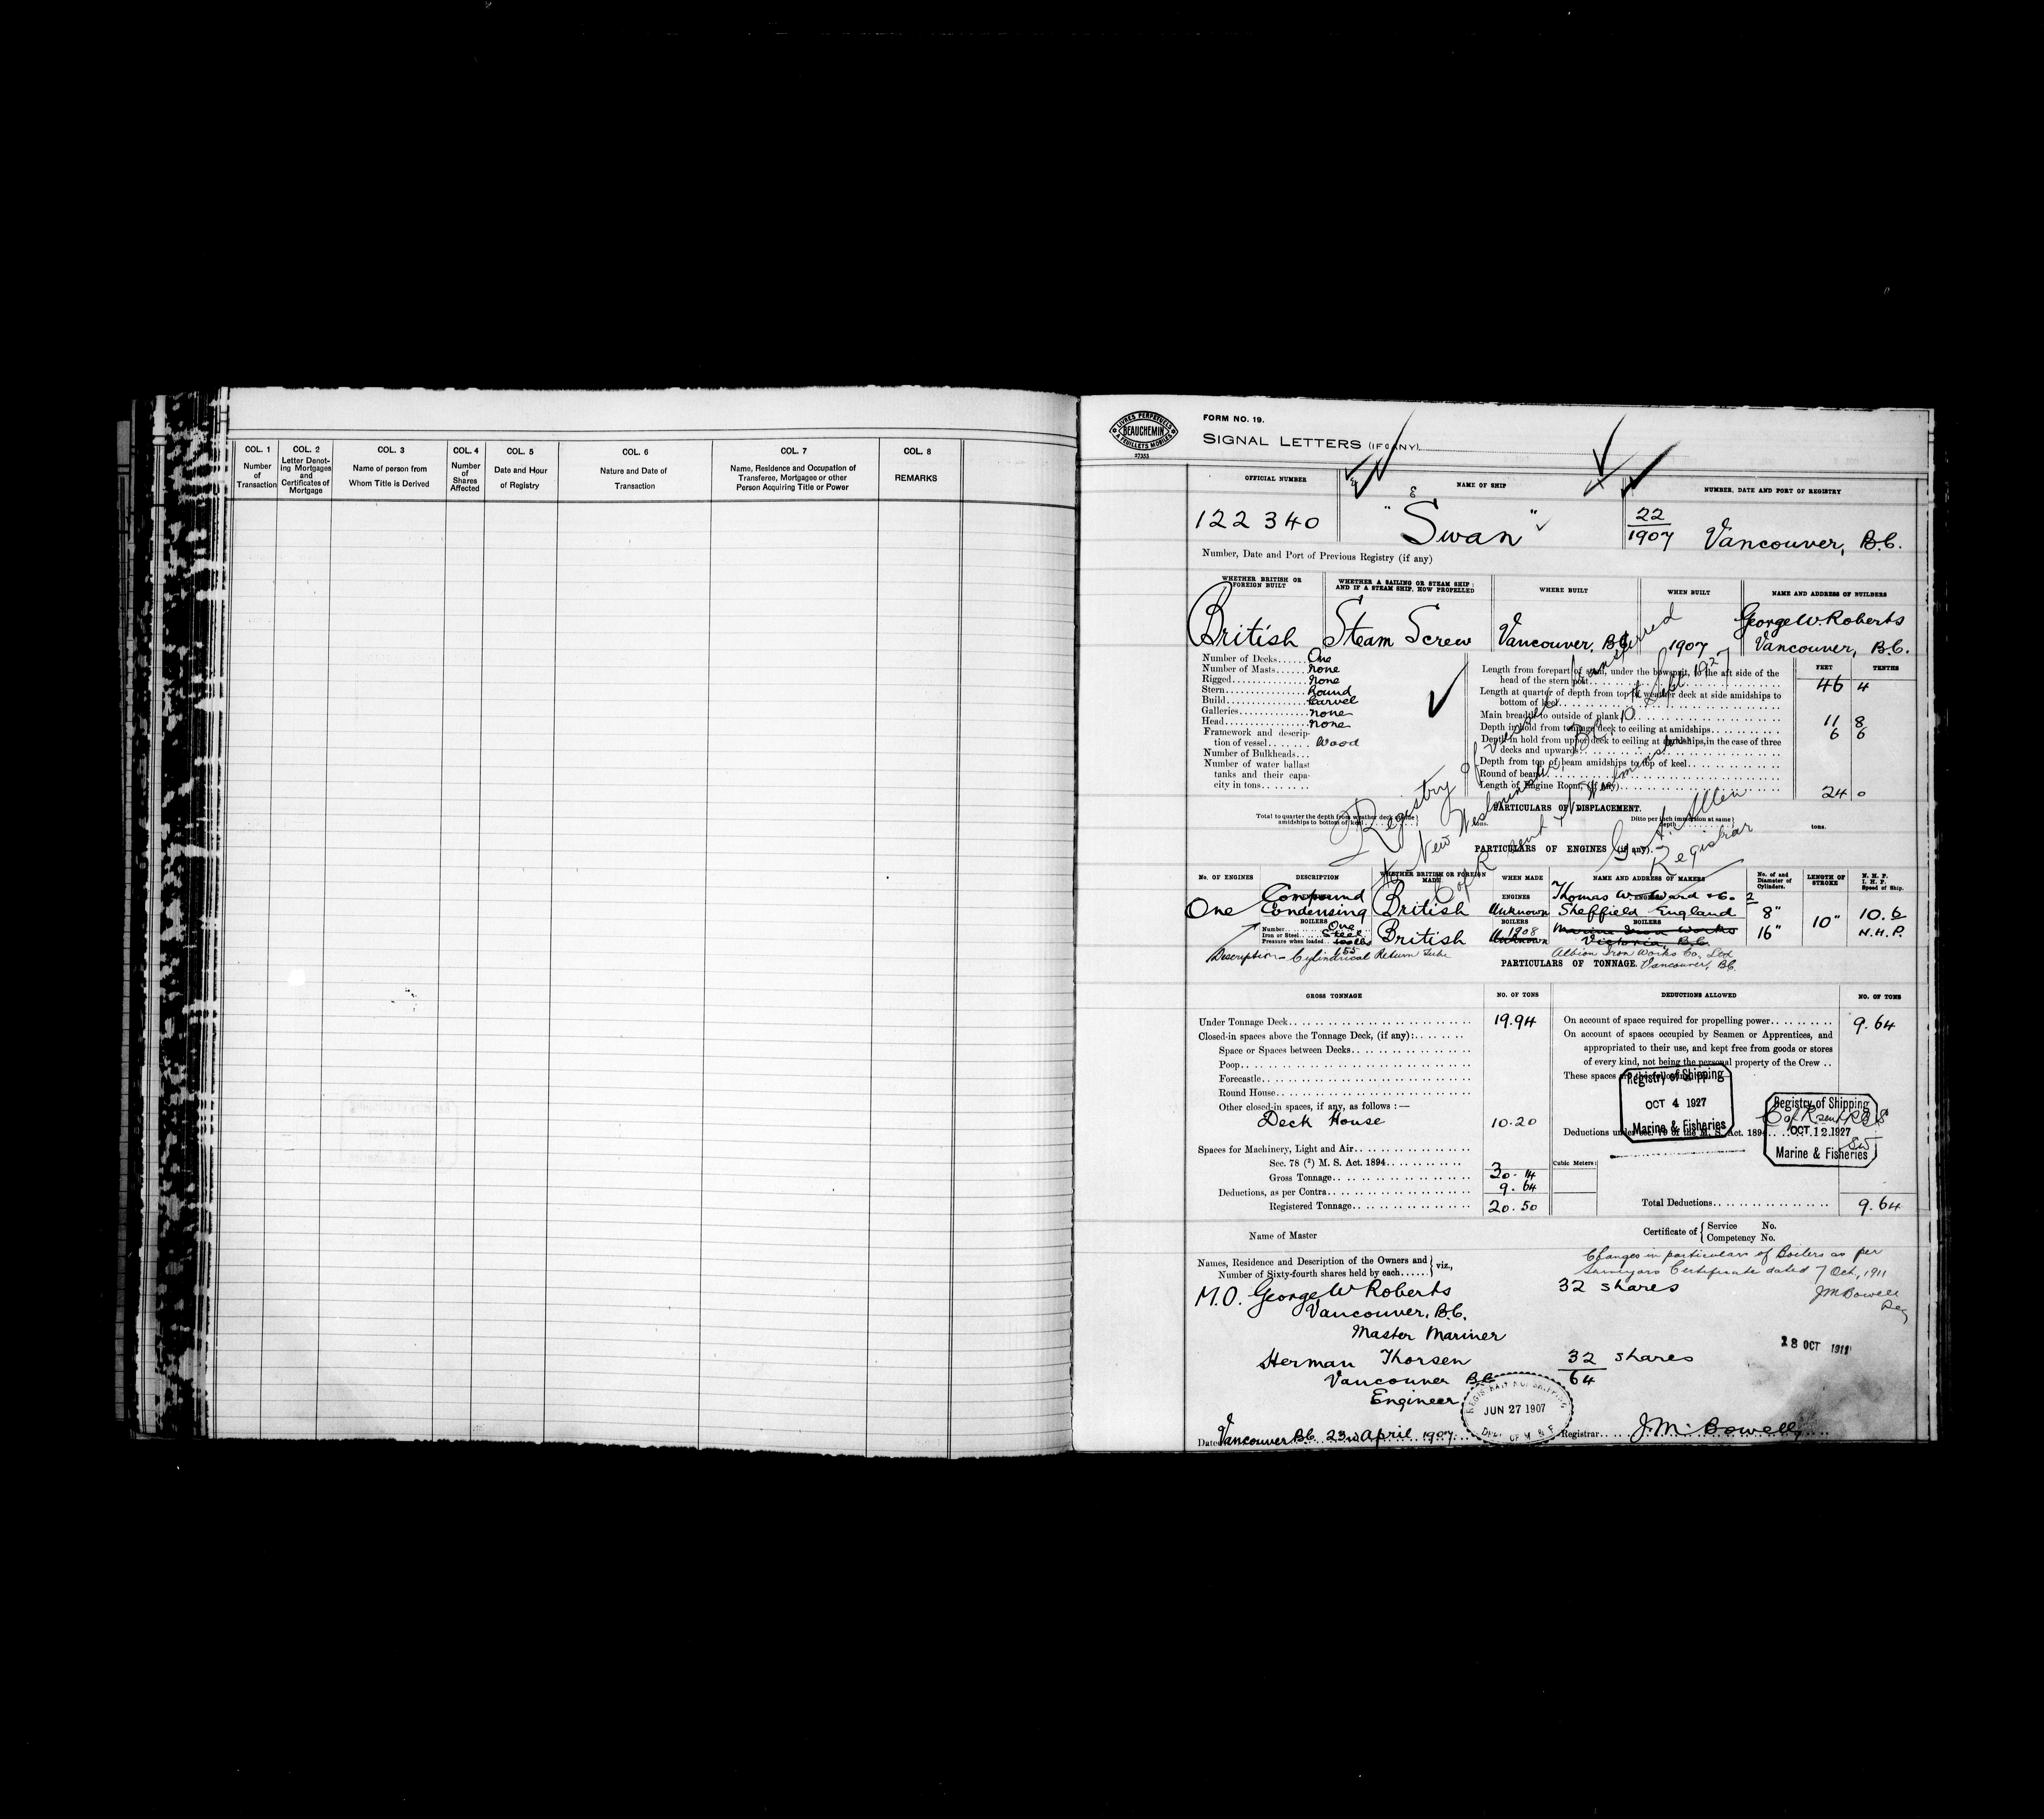 COL. 1
Number
of
Transaction
COL. 2
Letter Denot-
ing Mortgages
and
Certificates of
Mortgage
COL. 3
Name of person from
Whom Title is Derived
COL. 4
Number
of
Shares
Affected
COL. 5
Date and Hour
of Registry
COL. 6
Nature and Date of
Transaction
COL. 7
Name, Residence and Occupation of
Transferee, Mortgagee or other
Person Acquiring Title or Power
COL. 8
REMARKS
LIVRES PERPETUELS
BEAUCHEMIN
A FEUILLETS MOBILES
27353
FORM NO. 19.
SIGNAL LETTERS (IF ANY)
OFFICIAL NUMBER
NAME OF SHIP
NUMBER, DATE AND PORT OF REGISTRY
122340
"Swan"
22
1907
Vancouver, B.C.
Number, Date and Port of Previous Registry (if any)
WHETHER BRITISH OR
FOREIGN BUILT
WHETHER A SAILING OR STEAM SHIP;
AND IF A STEAM SHIP, HOW PROPELLED
WHERE BUILT
WHEN BUILT
NAME AND ADDRESS OF BUILDERS
British
Steam Screw
Vancouver, B.C.
1907
George W. Roberts
Vancouver, B.C.
Number of Decks One
Number of Masts None
Rigged None
Stern Round
Build Carvel
Galleries None
Head None
Framework and descrip-
tion of vessel Wood
Number of Bulkheads
Number of water ballast
tanks and their capa-
city in tons
FEET TENTHS
Length from forepart of stem, under the bowsprit, to the aft side of the
head of the stern post 46 4
Length at quarter of depth from top of weather deck at side amidships to
bottom of keel
Main breadth to outside of plank 11 8
Depth in hold from tonnage deck to ceiling at amidships 6 6
Depth in hold from upper deck to ceiling at amidships, in the case of three
decks and upwards
Depth from top of beam amidships to top of keel
Round of beam
Length of Engine Room, (if any) 24 0
Registry of vessel transferred
to New Westminster, BC 10 Sept 1927
C of R sent N. Westminster
G. A. Allen
Registrar
PARTICULARS OF DISPLACEMENT.
Total to quarter the depth from weather deck at side
amidships to bottom of keel
tons.
Ditto per inch immersion at same
depth
tons.
PARTICULARS OF ENGINES (if any).
No. OF ENGINES
DESCRIPTION
WHETHER BRITISH OR FOREIGN
MADE
WHEN MADE
NAME AND ADDRESS OF MAKERS
No. of and
Diameter of
Cylinders.
LENGTH OF
STROKE
N. H. P.
I. H. P.
Speed of Ship.
One
Compound
Condensing
British
ENGINES
Unknown
Thomas W. Ward & Co.
Sheffield England
2
8"
16"
10"
10.6
N.H.P.
BOILERS
Number One
Iron or Steel Steel
Pressure when loaded
155
British
BOILERS
1908
Unknown
BOILERS
Marine Iron Works
Victoria, B.C.
Description - Cylindrical Return Tube
Albion Iron Works Co, Ltd
Vancouver, BC.
PARTICULARS OF TONNAGE.
GROSS TONNAGE
NO. OF TONS
DEDUCTIONS ALLOWED
NO. OF TONS
Under Tonnage Deck 19.94
Closed-in spaces above the Tonnage Deck, (if any):
Space or Spaces between Decks
Poop
Forecastle
Round House
Other closed-in spaces, if any, as follows :—
Deck House 10.20
Spaces for Machinery, Light and Air
Sec. 78 (²) M. S. Act. 1894
Gross Tonnage 30.14
Deductions, as per Contra 9.64
Registered Tonnage 20.50
On account of space required for propelling power 9.64
On account of spaces occupied by Seamen or Apprentices, and
appropriated to their use, and kept free from goods or stores
of every kind, not being the personal property of the Crew
These spaces are the following
Registry of Shipping
OCT 4 1927
Marine & Fisheries
Registry of Shipping
OCT 12 1927
Marine & Fisheries
Deductions under Sec. 79 of the M. S. Act. 1894
Cubic Meters:
Total Deductions 9.64
Name of Master
Certificate of { Service No.
Competency No.
Names, Residence and Description of the Owners and
Number of Sixty-fourth shares held by each } viz.,
Changes in particulars of Boilers as per
Surveyors Certificate dated 7 Oct, 1911
JM Bowell
Reg
M.O. George W Roberts 32 shares
Vancouver, B.C.
Master Mariner
18 OCT 1911
Herman Thorsen 32 shares
Vancouver B.C. 64
Engineer
REGISTRAR OF SHIPPING
JUN 27 1907
DEPT OF M & F
Dated Vancouver B.C. 23rd April 1907
Registrar J.M. Bowell